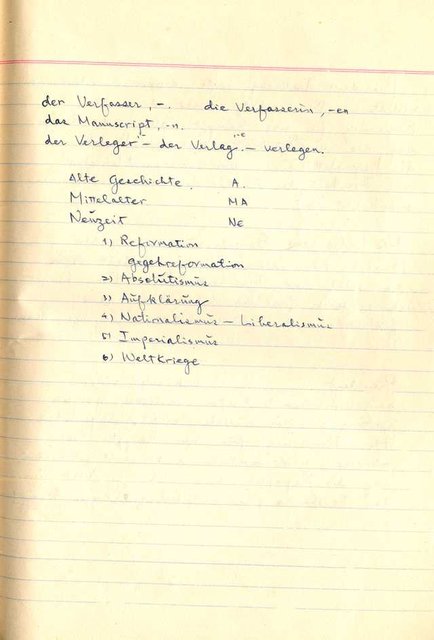 der Verfasser, -. die Verfasserin, -en
das Manuscript, -n.
der Verleger - der Verlag, -e - verlegen.
Alte Geschichte. A.
Mittelalter MA
Neuzeit Ne
1) Reformation
gegenreformation
2) Absolutismus
3) Aufklärung
4) Nationalismus - Liberalismus
5) Imperialismus
6) Weltkriege